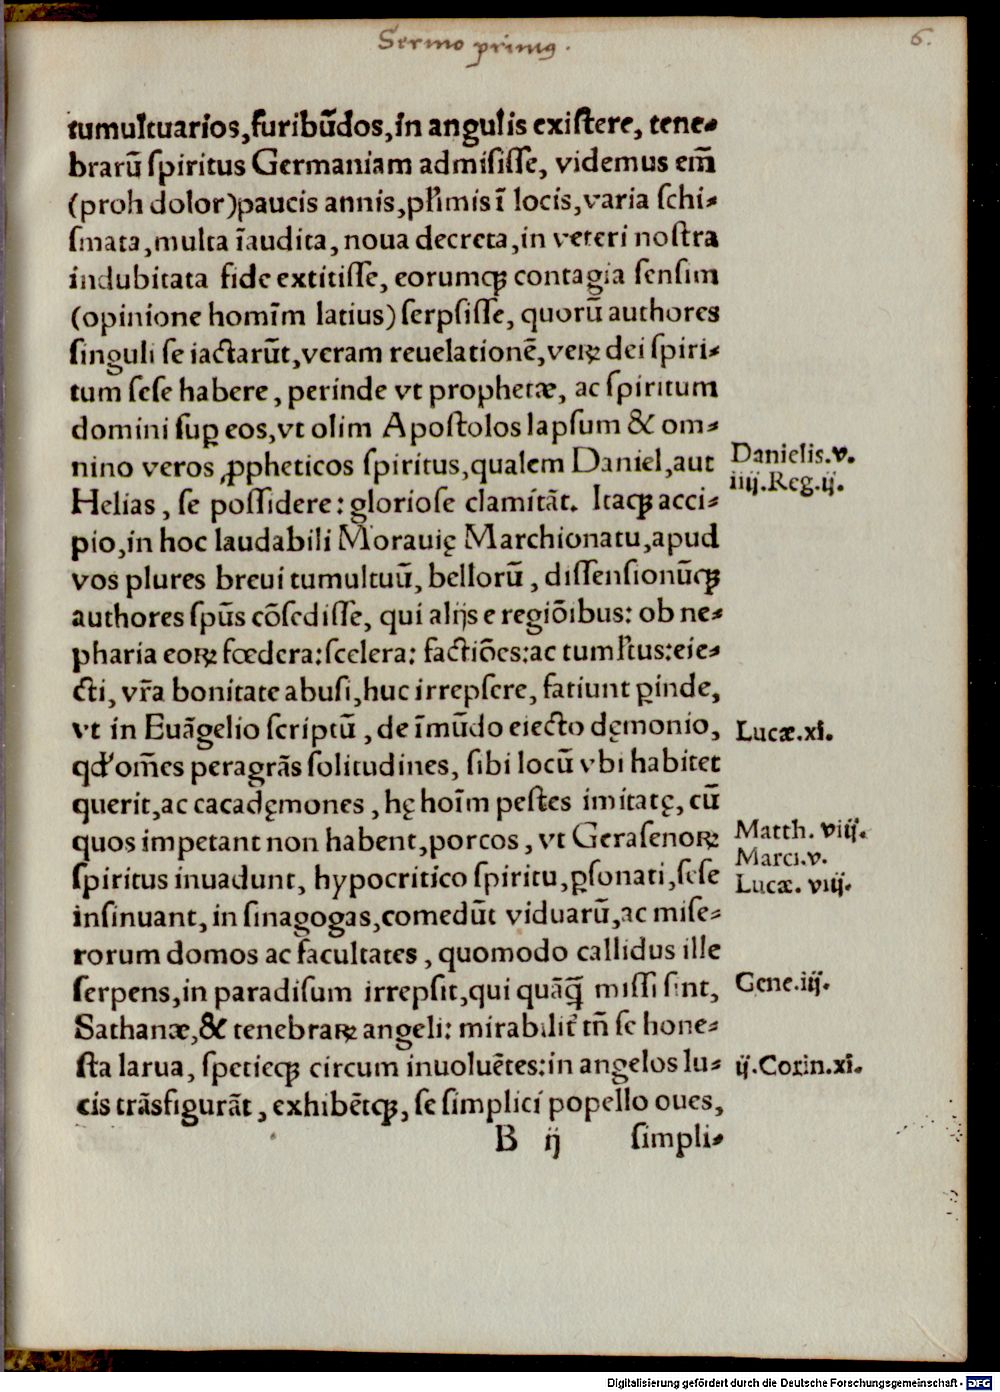 Sermo primꝰ.
6.
tumultuarios, furibūdos, in angulis existere, tene⸗
brarū spiritus Germaniam admisisse, videmus em̄
(proh dolor) paucis annis, pl'rimis ī locis, varia schi⸗
smata, multa īaudita, noua decreta, in veteri nostra
indubitata fide extitisse, eorumqꝫ contagia sensim
(opinione homīm latius) serpsisse, quorū authores
singuli se iactarūt, veram reuelationē, veꝝ dei spiri⸗
tum sese habere, perinde vt prophetæ, ac spiritum
domini suꝑ eos, vt olim Apostolos lapsum & om⸗
nino veros ꝓpheticos spiritus, qualem Daniel, aut
Danielis.v.
iiij.Reg.ij.
Helias, se possidere: gloriose clamitāt. Itaqꝫ acci⸗
pio, in hoc laudabili Morauię Marchionatu, apud
vos plures breui tumultuū, bellorū, dissensionūqꝫ
authores spūs cōsedisse, qui alijs e regiōibus: ob ne⸗
pharia eoꝝ fœdera: scelera: factiōes: ac tuml'tus: eie⸗
cti, vr̄a bonitate abusi, huc irrepsere, fatiunt ꝑinde,
vt in Euāgelio scriptū, de īmūdo eiecto dęmonio,
Lucæ.xi.
qd' om̄es peragrās solitudines, sibi locū vbi habitet
querit, ac cacadęmones, hę hoīm pestes imitatę, cū
quos impetant non habent, porcos, vt Gerasenoꝝ
Matth. viij.
Marci.v.
spiritus inuadunt, hypocritico spiritu, ꝑsonati, sese
Lucæ. viij.
insinuant, in sinagogas, comedūt viduarū, ac mise⸗
rorum domos ac facultates, quomodo callidus ille
serpens, in paradisum irrepsit, qui quāqꝫ̄ missi sint,
Gene.iij.
Sathanæ, & tenebraꝝ angeli: mirabilit' tn̄ se hone⸗
sta larua, spetieqꝫ circum inuoluētes: in angelos lu⸗
ij.Corin.xi.
cis trāsfigurāt, exhibētqꝫ, se simplici popello oues,
B ij simpli⸗
Digitalisierung gefördert durch die Deutsche Forschungsgemeinschaft - DFG